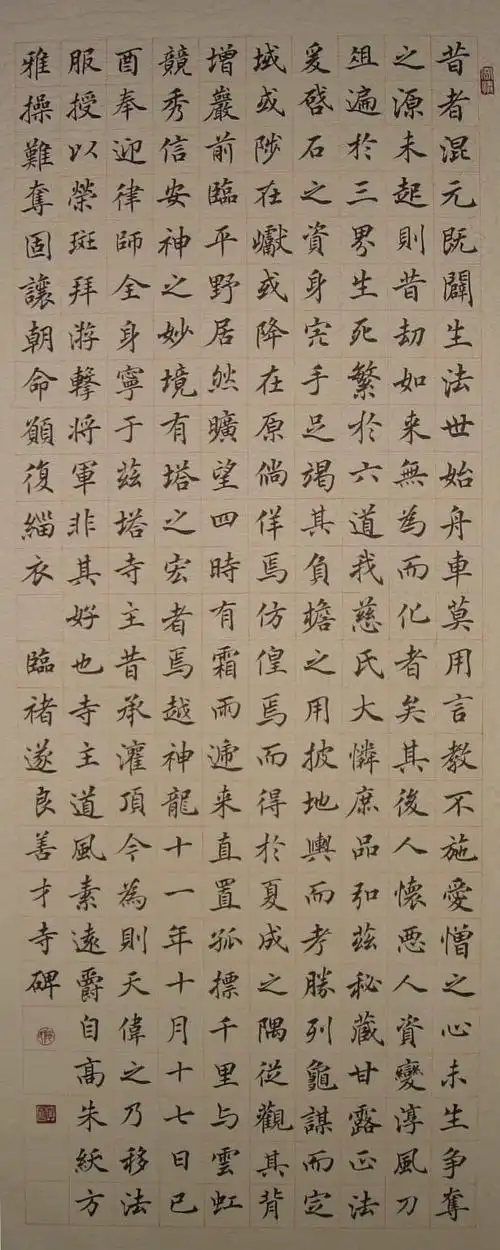 昔者混元既闢生法世始舟車莫用言教不施愛憎之心未生争奪
之源未起則昔劫如来無為而化者矣其後人懷悪人資變淳風刀
俎遍於三界生死繁於六道我慈氏大憐庶品弘茲秘藏甘露正法
爰啓石之資身完手足竭其負檐之用披地輿而考勝列龜謀而定
域或陟在巘或降在原倘佯焉仿偟焉而得於夏成之隅従觀其背
增巖前臨平野居然曠望四時有霜雨遞来直置孤標千里与雲虹
競秀信安神之妙境有塔之宏者焉越神龍十一年十月十七日己
酉奉迎律師全身寧于茲塔寺主昔承灌頂今為則天偉之乃移法
服授以榮班拜游擊將軍非其好也寺主道風素遠爵自高朱紱方
雅操難奪固讓朝命顧復緇衣 臨褚遂良善才寺碑